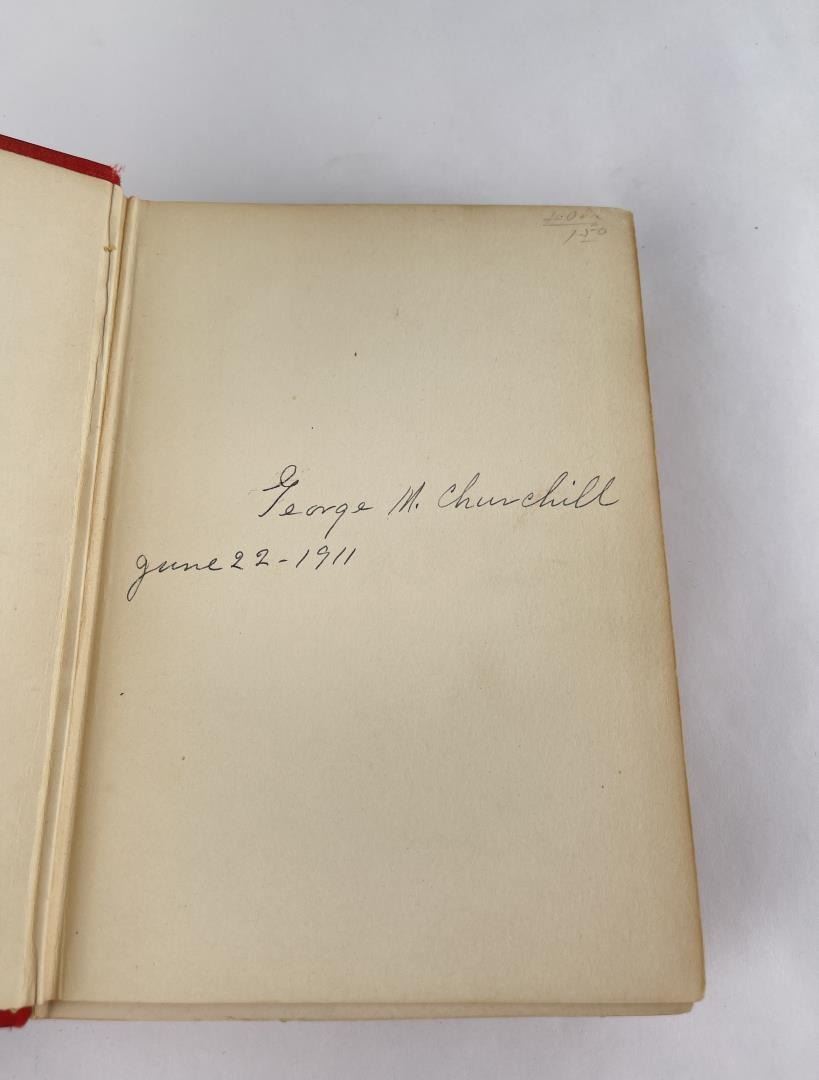 150
George M. Churchill
June 22-1911